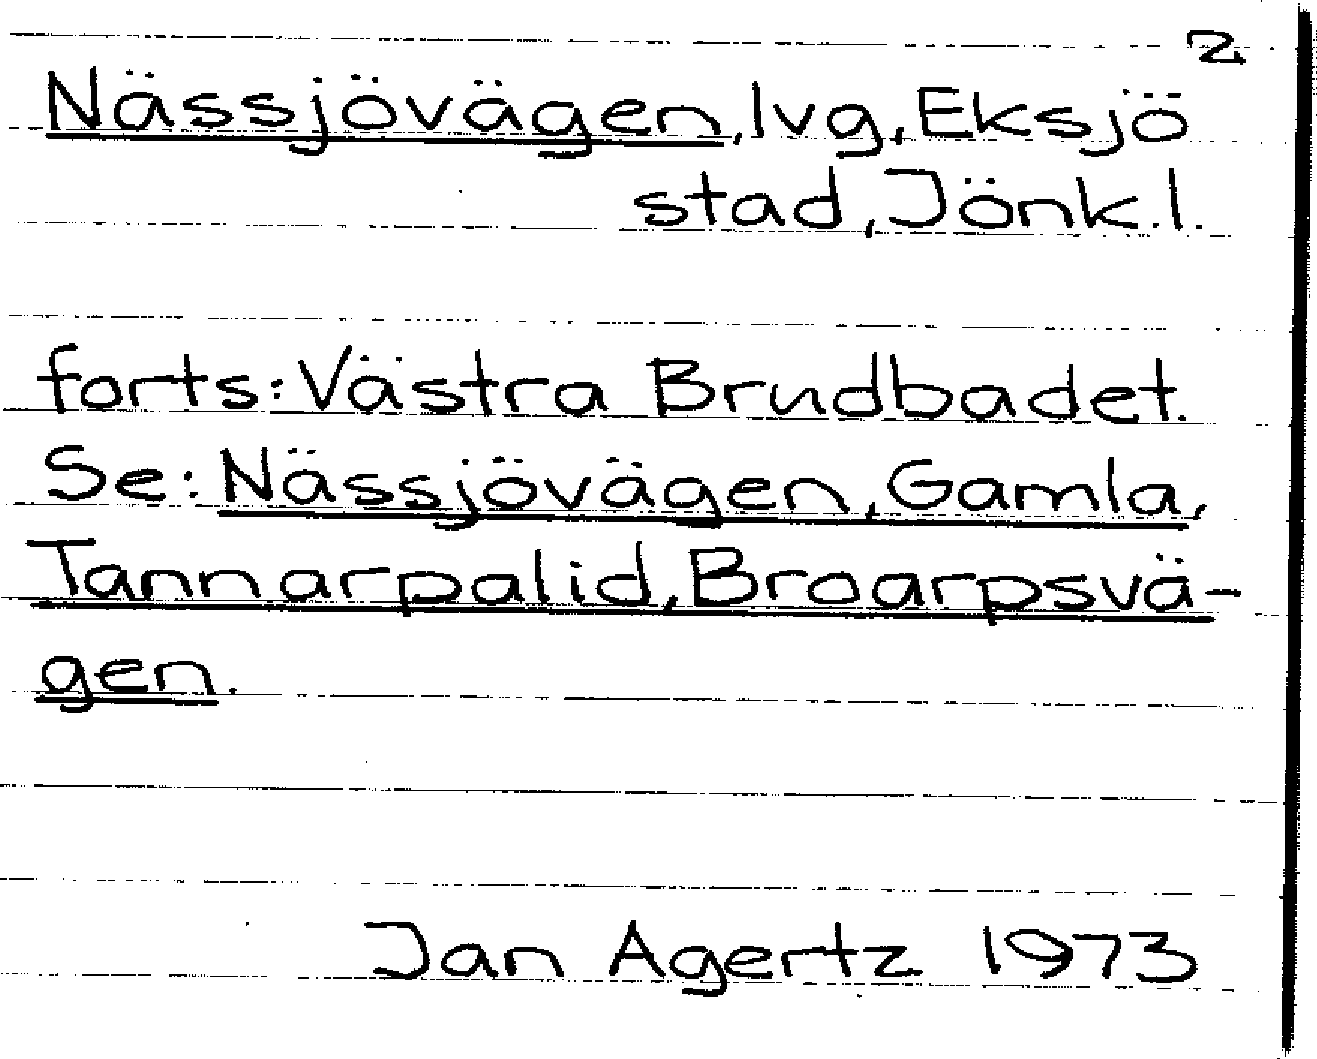 2
Nässjövägen, lvg, Eksjö
stad, Jönk.l.
forts: Västra Brudbadet.
Se: Nässjövägen, Gamla,
Tannarpalid, Broarpsvä-
gen.
Jan Agertz 1973